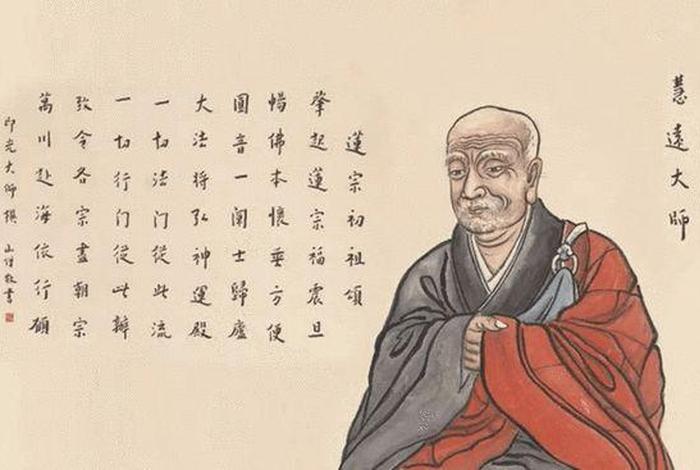 慧遠大師
蓮宗初祖頌
肇起蓮宗福震旦
暢佛本懷垂方便
圓音一闡士歸廬
大法將弘神運殿
一切法门從此流
一切行门從此辦
致令各宗盡朝宗
萬川赴海依行願
印光大師撰 山僧敬書